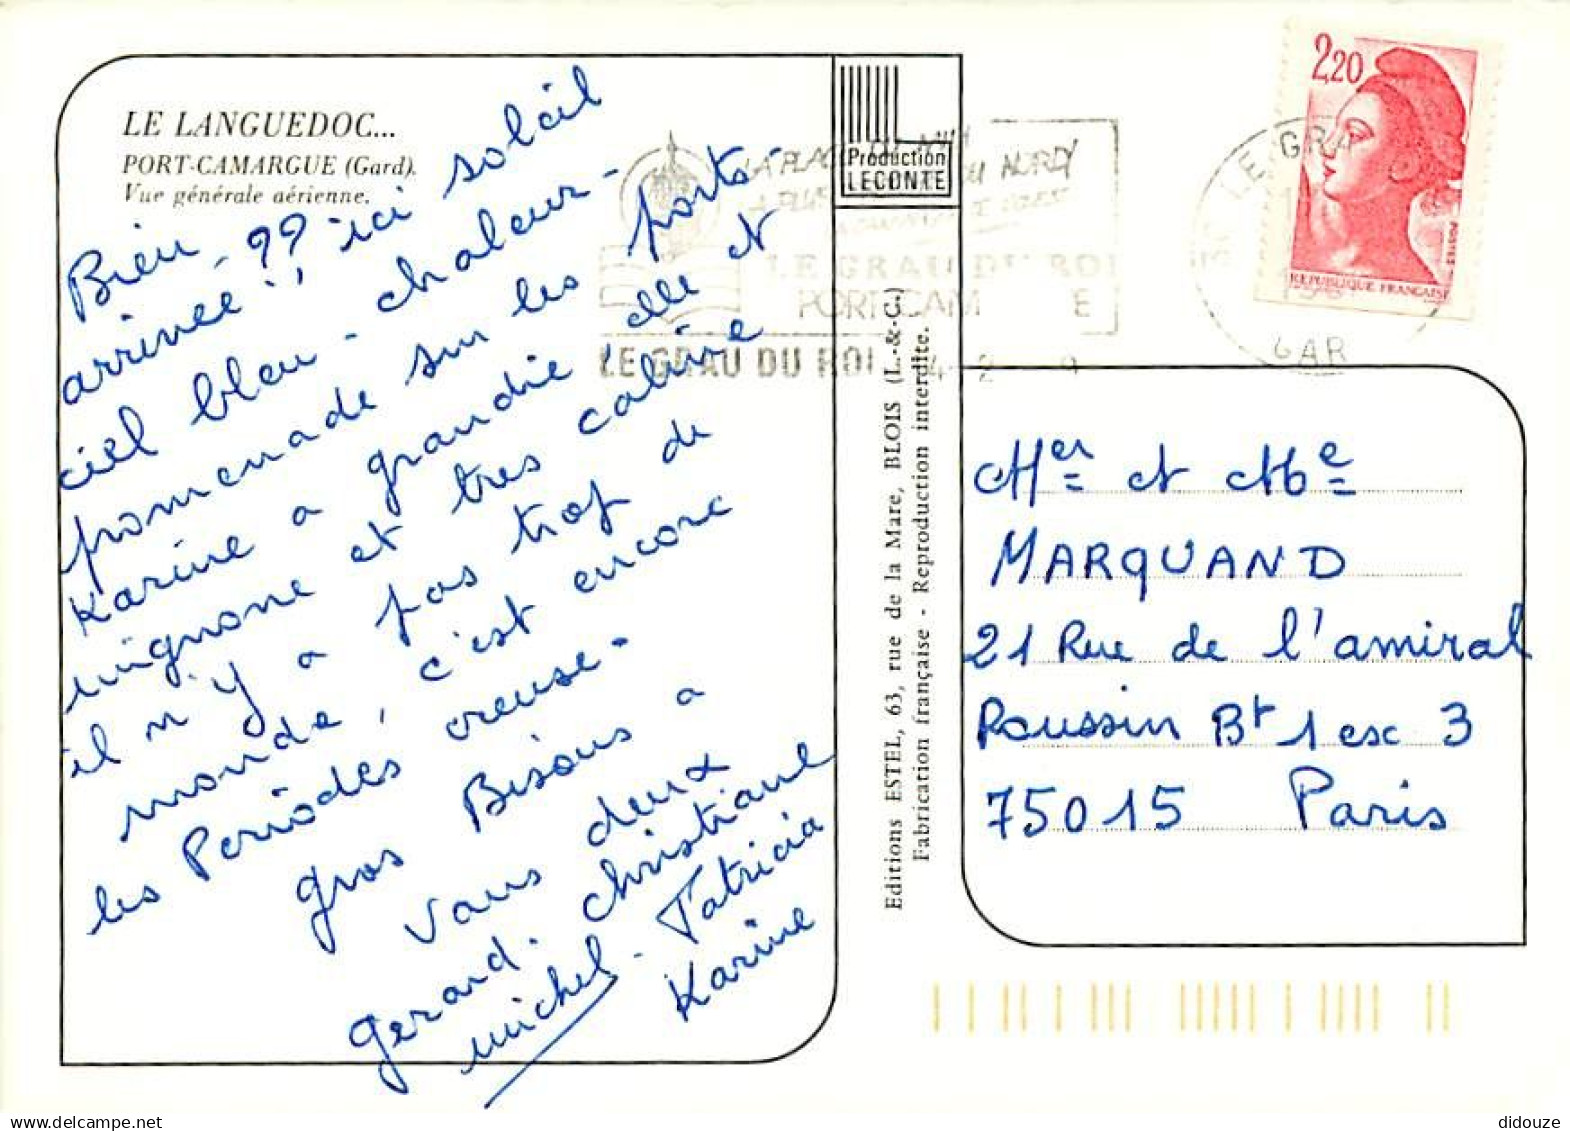 LE LANGUEDOC...
PORT-CAMARGUE (Gard).
Vue générale aérienne.
Bien - ??
arrivée !, ici soleil
ciel bleu - chaleur -
promenade sur les ports -
Karine a grandie, elle et
mignone et tres caline
il n'y a pas trop de
monde, c'est encore
les Periodes creuse -
gros Bisous a
vous deux
gerard. christiane
michel - Patricia
Karine
Production
LECONTE
LE GRAU DU ROI
PORT CAM E
LE GRAU DU ROI
LE GRA
GAR
2,20
POSTES
REPUBLIQUE FRANÇAISE
Editions ESTEL, 63, rue de la Mare, BLOIS (L.-&-C.)
Fabrication française - Reproduction interdite.
Mer et Me
MARQUAND
21 Rue de l'amiral
Roussin Bt 1 esc 3
75015 Paris
didouze